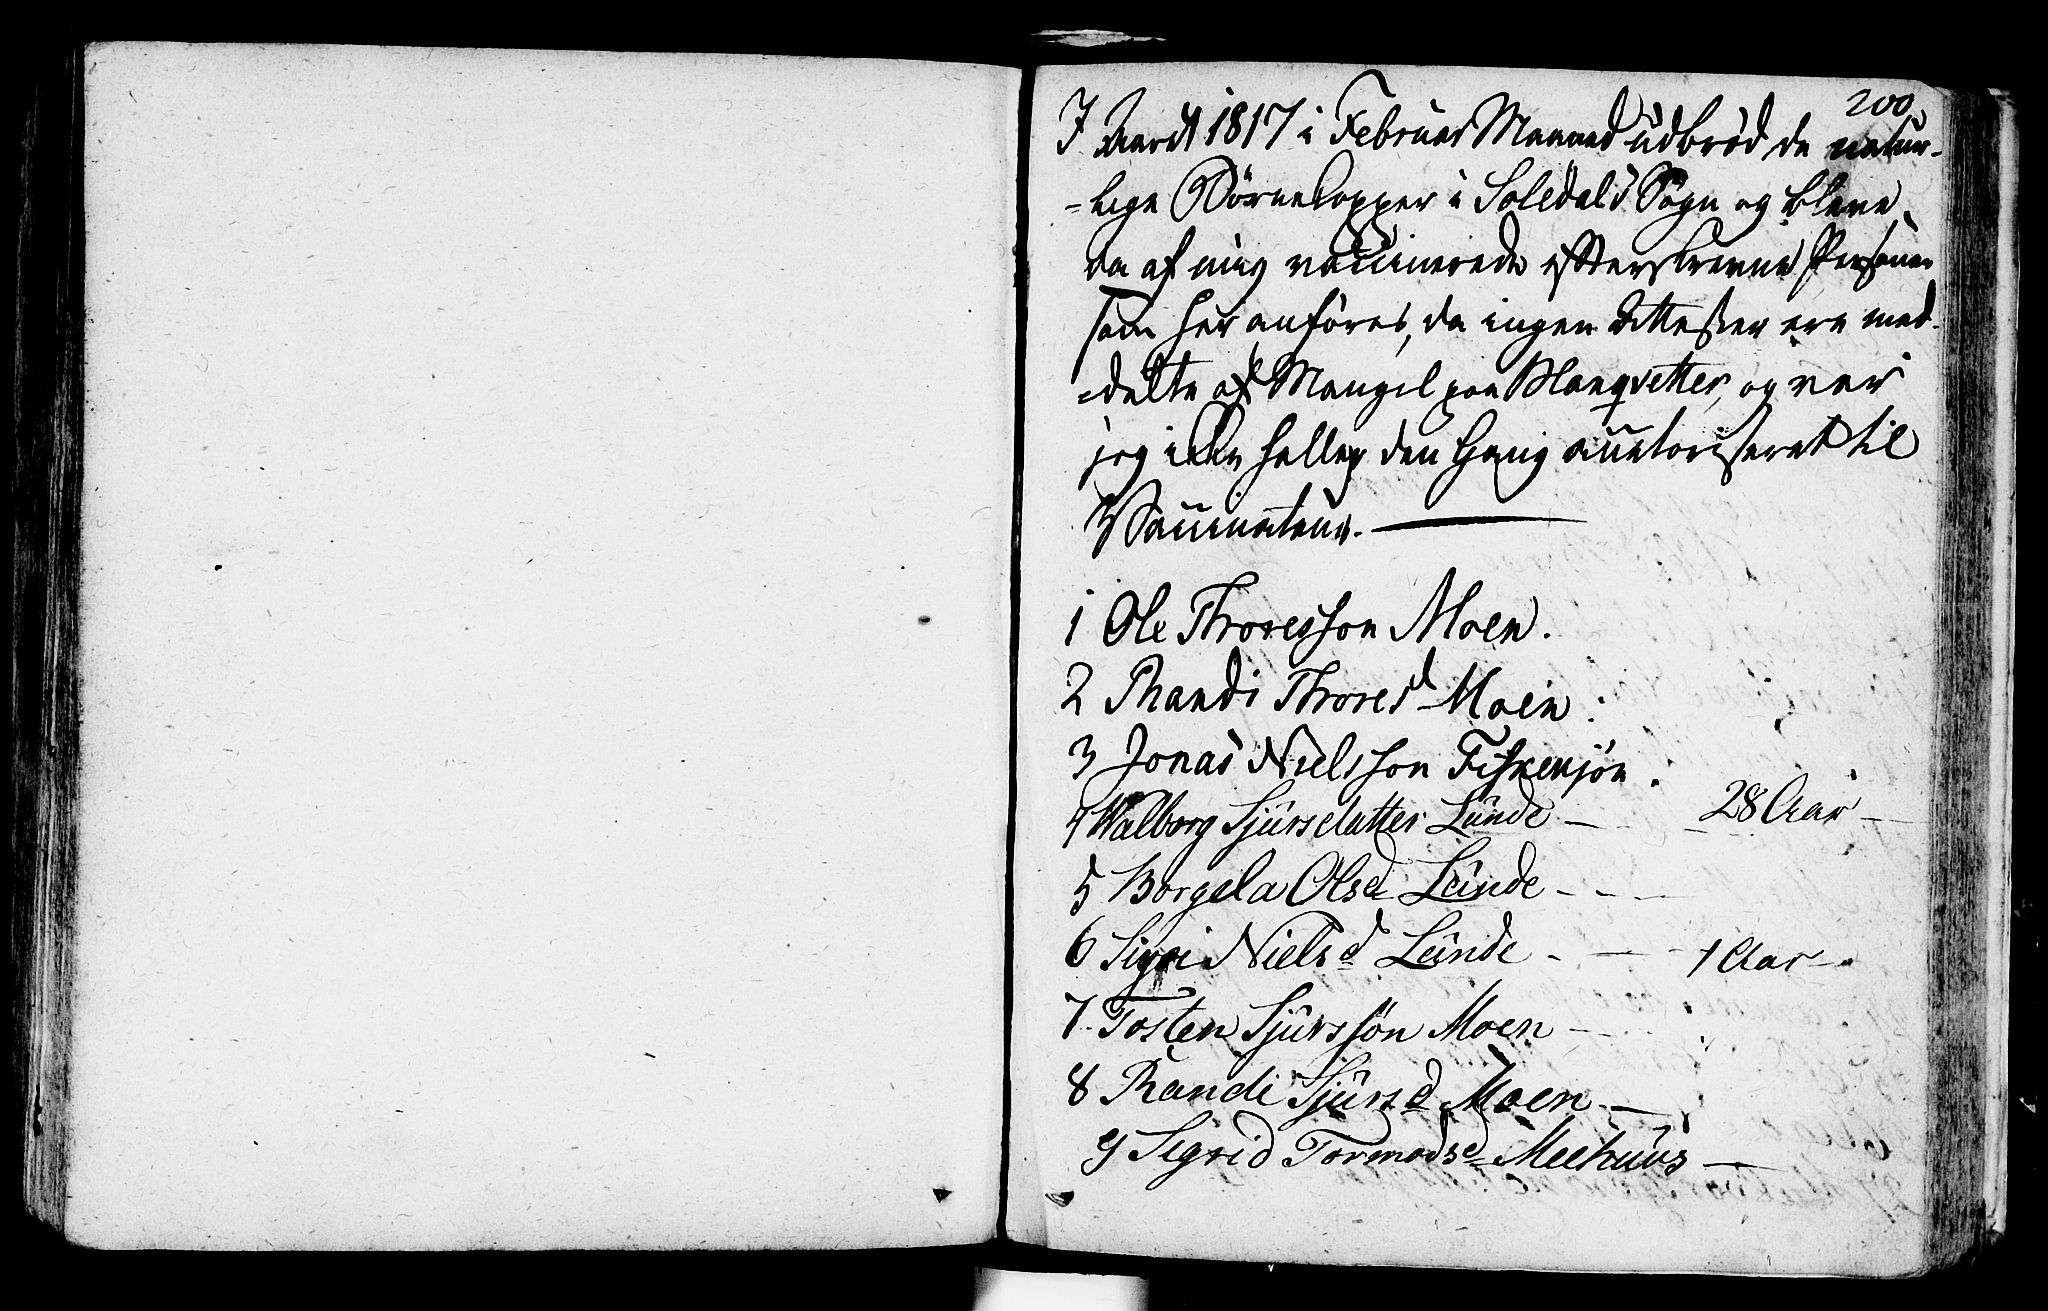 200
I Aaret 1817 i Februar Maaned udbrød de natur-
-lige Børnekopper i Soledals Sogn og bleve
da af mig vaccinerede efterskrevne Personer
som her anføres, da ingen Attester ere med-
-delte af Mangel paa Blanqvetter, og var
jeg ikke heller den Gang auctoriseret til
Vaccinateur.
1 Ole Thoresson Moen.
2 Randi Thoresd Moen.
3 Jonas Nielsson Fiskensjøn.
4 Walborg Sjursdatter Lunde - 28 Aar
5 Borgela Olsd Lunde
6 Sigri Nielsd Lunde - 1 Aar
7. Tosten Sjurssøn Moen
8 Randi Sjursd Moen
9 Sigrid Tormodsd Meehuus